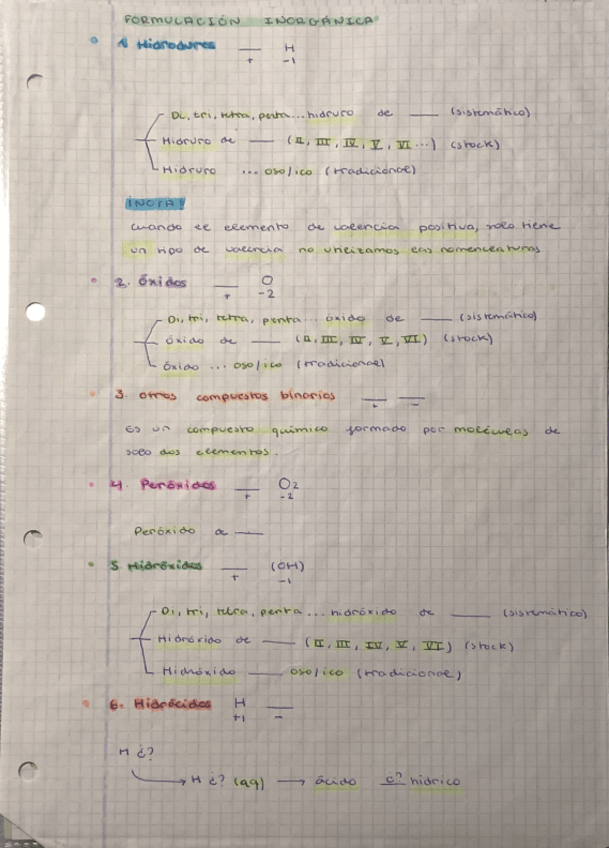 FORMULACIÓN INORGÁNICA
1 Hidroduros ___ H
+ -1
Di, tri, tetra, penta... hidruro de ___ (sistemático)
Hidruro de ___ (II, III, IV, V, VI...) (stock)
Hidruro ... oso/ico (tradicional)
¡NOTA!
Cuando el elemento de valencia positiva, solo tiene
un tipo de valencia no utilizamos las nomenclaturas
2. Óxidos ___ O
+ -2
Di, tri, tetra, penta... óxido de ___ (sistemático)
Óxido de ___ (II, III, IV, V, VI) (stock)
Óxido ... oso/ico (tradicional)
3. Otros compuestos binarios ___ ___
+ -
Es un compuesto químico formado por moléculas de
solo dos elementos.
4. Peróxidos ___ O2
+ -2
Peróxido de ___
5 Hidróxidos ___ (OH)
+ -1
Di, tri, tetra, penta... hidróxido de ___ (sistemático)
Hidróxido de ___ (II, III, IV, V, VI) (stock)
Hidróxido ___ oso/ico (tradicional)
6. Hidrácidos H ___
+1 -
H ¿?
→ H ¿? (aq) → ácido ¿? hídrico